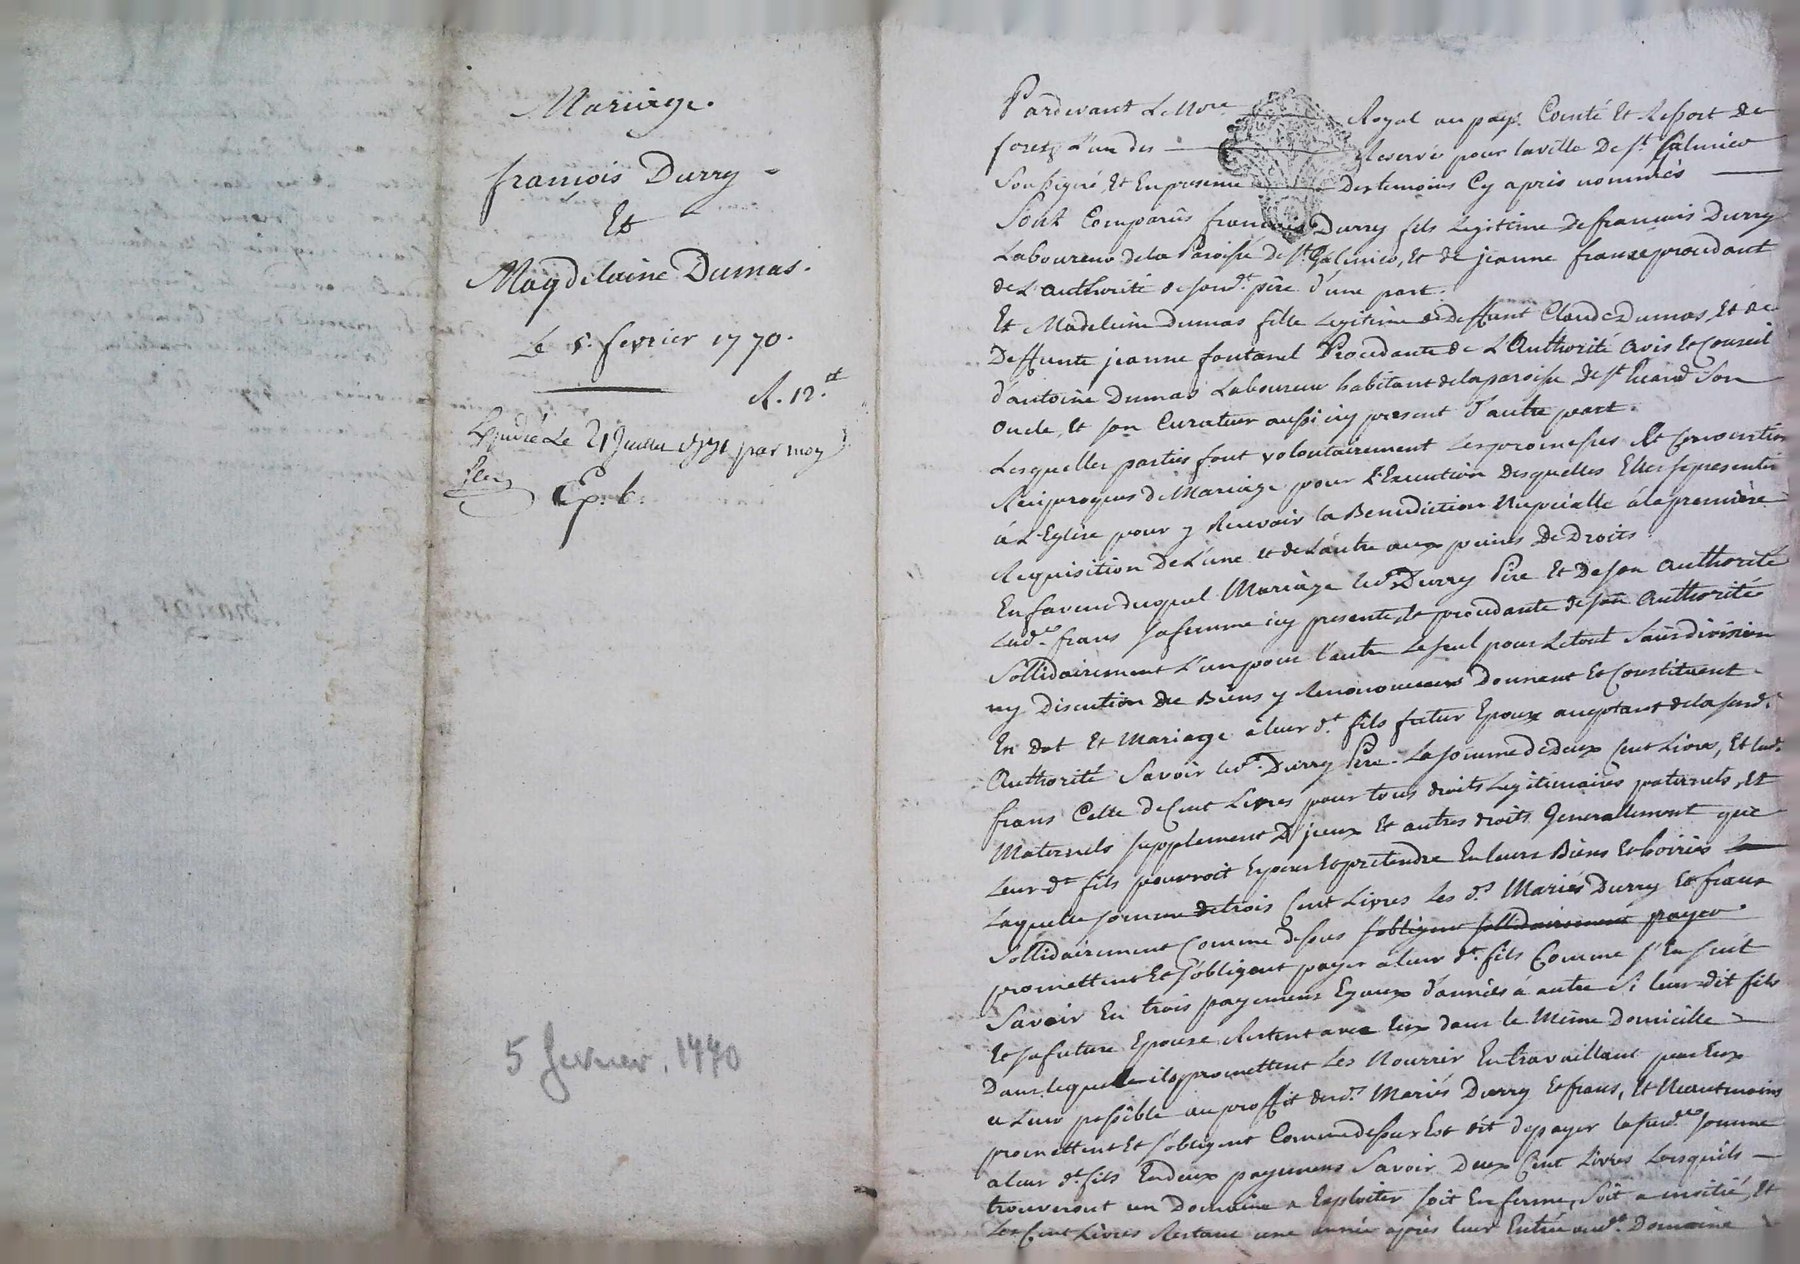 Mariage.
françois Durry
Et
Magdelaine Dumas.
Le 5. fevrier 1770.
R. 12.tt
Expedié Le 21 Juillet 1771 par moy
Ex. b.
5 fevrier. 1770
Pardevant Le Nore Royal au pays Comté Et Ressort de
forez L'un des Reservés pour la ville De st Galmier
Soussigné Et En presence Des temoins Cy après nommés
Sont Comparûs françois Durry fils Legitime de françois Durry
Laboureur de la Paroisse De st Galmier, Et de jeanne frans procedant
de L'authorité de sond. père d'une part.
Et Madeleine Dumas fille Legitime de Deffunt Claude Dumas, Et de
Deffunte jeanne fontanel Procedante de L'Authorité avis Et Conseil
d'antoine Dumas Laboureur habitant de la paroisse De st son
oncle, Et son Curateur aussi icy present d'autre part.
Lesquelles parties font volontairement Les promesses Et Convention
Reciproques de Mariage pour L'Execution Desquelles Elles se presenter
à L'Eglise pour y Recevoir la Benediction Nuptialle à la première
Requisition De L'une et de L'autre aux peines De Droits
En faveur duquel Mariage led. Durry Père Et De son Authorité
Lad.e frans sa femme icy presente, Et procedante de son Authorité
Sollidairement L'un pour l'autre Le seul pour Le tout Sans division
ny Discution De Biens y Renonceans Donnent Et Constituent
En dot Et Mariage à leur d.t fils futur Epoux acceptant de la susd.
Authorité Savoir led. Durry Père La somme de Deux Cent Livres, Et lad.
frans Celle de Cent Livres pour tous droits Legitimaires paternels, Et
Maternels supplement D'jceux Et autres droits Generallement que
Leur d.t fils pourroit Esperer Et pretendre En leurs Biens Et hoiries
Laquelle somme de trois Cent Livres Les d.s Mariés Durry Et frans
Sollidairement Comme dessus s'obligent sollidairement payer
promettent Et s'obligent payer à leur d.t fils Comme s'En suit
Savoir En trois payemens Egaux d'années à autre Si leur dit fils
Et sa future Epouse Restent avec Eux dans le Même Domicille
Dans lequel ils promettent Les Nourrir En travaillant par Eux
à Leur possible au proffit desd. Mariés Durry Et frans, Et Neantmoins
promettent Et s'obligent Comme dessus Est dit de payer la susd. somme
à leur d.t fils En deux payemens Savoir Deux Cent Livres Lorsqu'ils
trouveront un Domaine à Exploiter soit En ferme, soit à moitié, Et
Les Cent Livres Restant une année après leur Entrée aud. Domaine